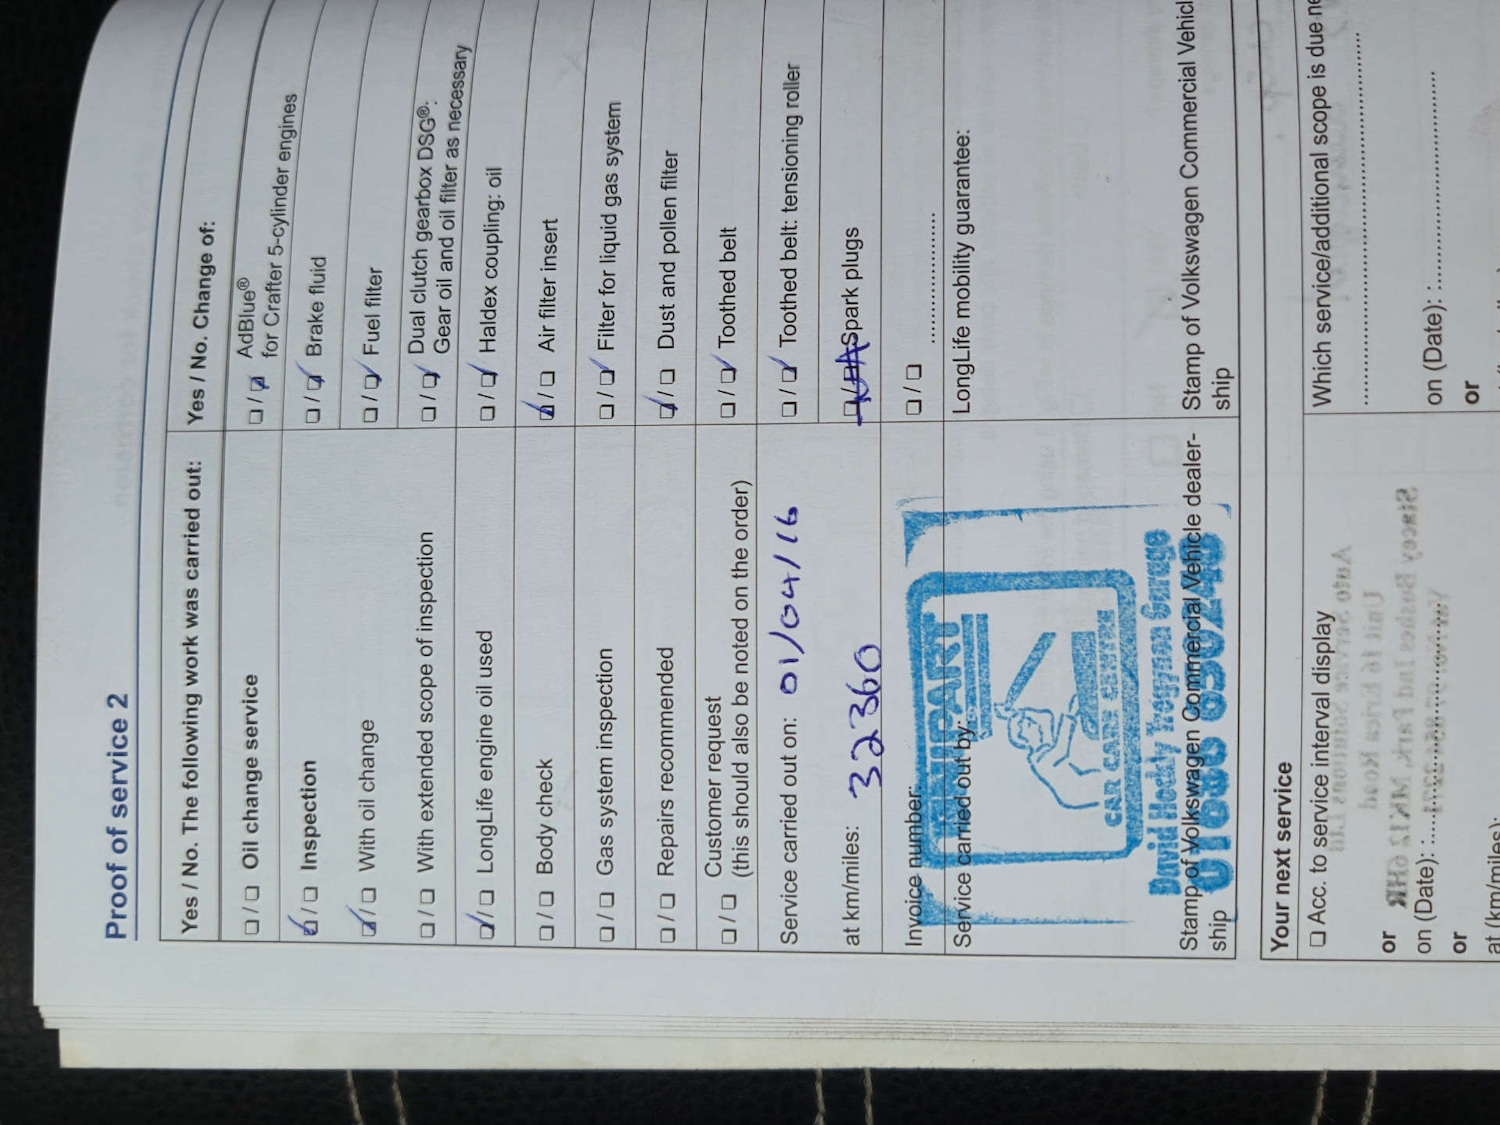 Proof of service 2
Yes / No. The following work was carried out:
❏ / ❏ Oil change service
❏ / ❏ Inspection
❏ / ❏ With oil change
❏ / ❏ With extended scope of inspection
❏ / ❏ LongLife engine oil used
❏ / ❏ Body check
❏ / ❏ Gas system inspection
❏ / ❏ Repairs recommended
❏ / ❏ Customer request
(this should also be noted on the order)
Service carried out on: 01/04/16
at km/miles: 32360
Invoice number:
Service carried out by:
CAR CARE CENTRE
David Hockly Tregynon Garage
01686 650248
Stamp of Volkswagen Commercial Vehicle dealer-
ship
Yes / No. Change of:
❏ / ❏ AdBlue®
for Crafter 5-cylinder engines
❏ / ❏ Brake fluid
❏ / ❏ Fuel filter
❏ / ❏ Dual clutch gearbox DSG®:
Gear oil and oil filter as necessary
❏ / ❏ Haldex coupling: oil
❏ / ❏ Air filter insert
❏ / ❏ Filter for liquid gas system
❏ / ❏ Dust and pollen filter
❏ / ❏ Toothed belt
❏ / ❏ Toothed belt: tensioning roller
Spark plugs
❏ / ❏ ....................
LongLife mobility guarantee:
Stamp of Volkswagen Commercial Vehicl
ship
Your next service
❏ Acc. to service interval display
or
on (Date): :....................
or
at (km/miles):
Which service/additional scope is due ne
....................
on (Date): :....................
or